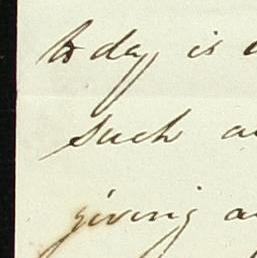 to day is
such
giving